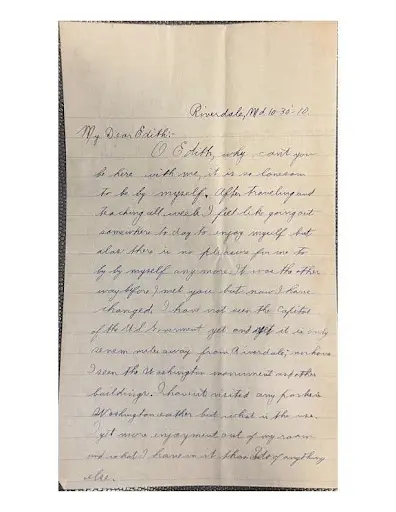 Riverdale, Md. 10-30-10.
My Dear Edith:-
O Edith, why can't you
be here with me, it is so lonesom
to be by myself. After traveling and
teaching all week I feel like going out
somewhere to day to enjoy myself but
alas there is no pleasure for me to
by by myself any more. It was the other
way before I met you but now I have
changed. I have not seen the Capitol
of the U.S. Government yet and yet it is only
seven miles away from Riverdale; nor have
I seen the Washington monument and other
buildings. I havn't visited any parks in
Washington eather but what is the use.
I get more enjoyment out of my room
and what I have in it than of anything
else.